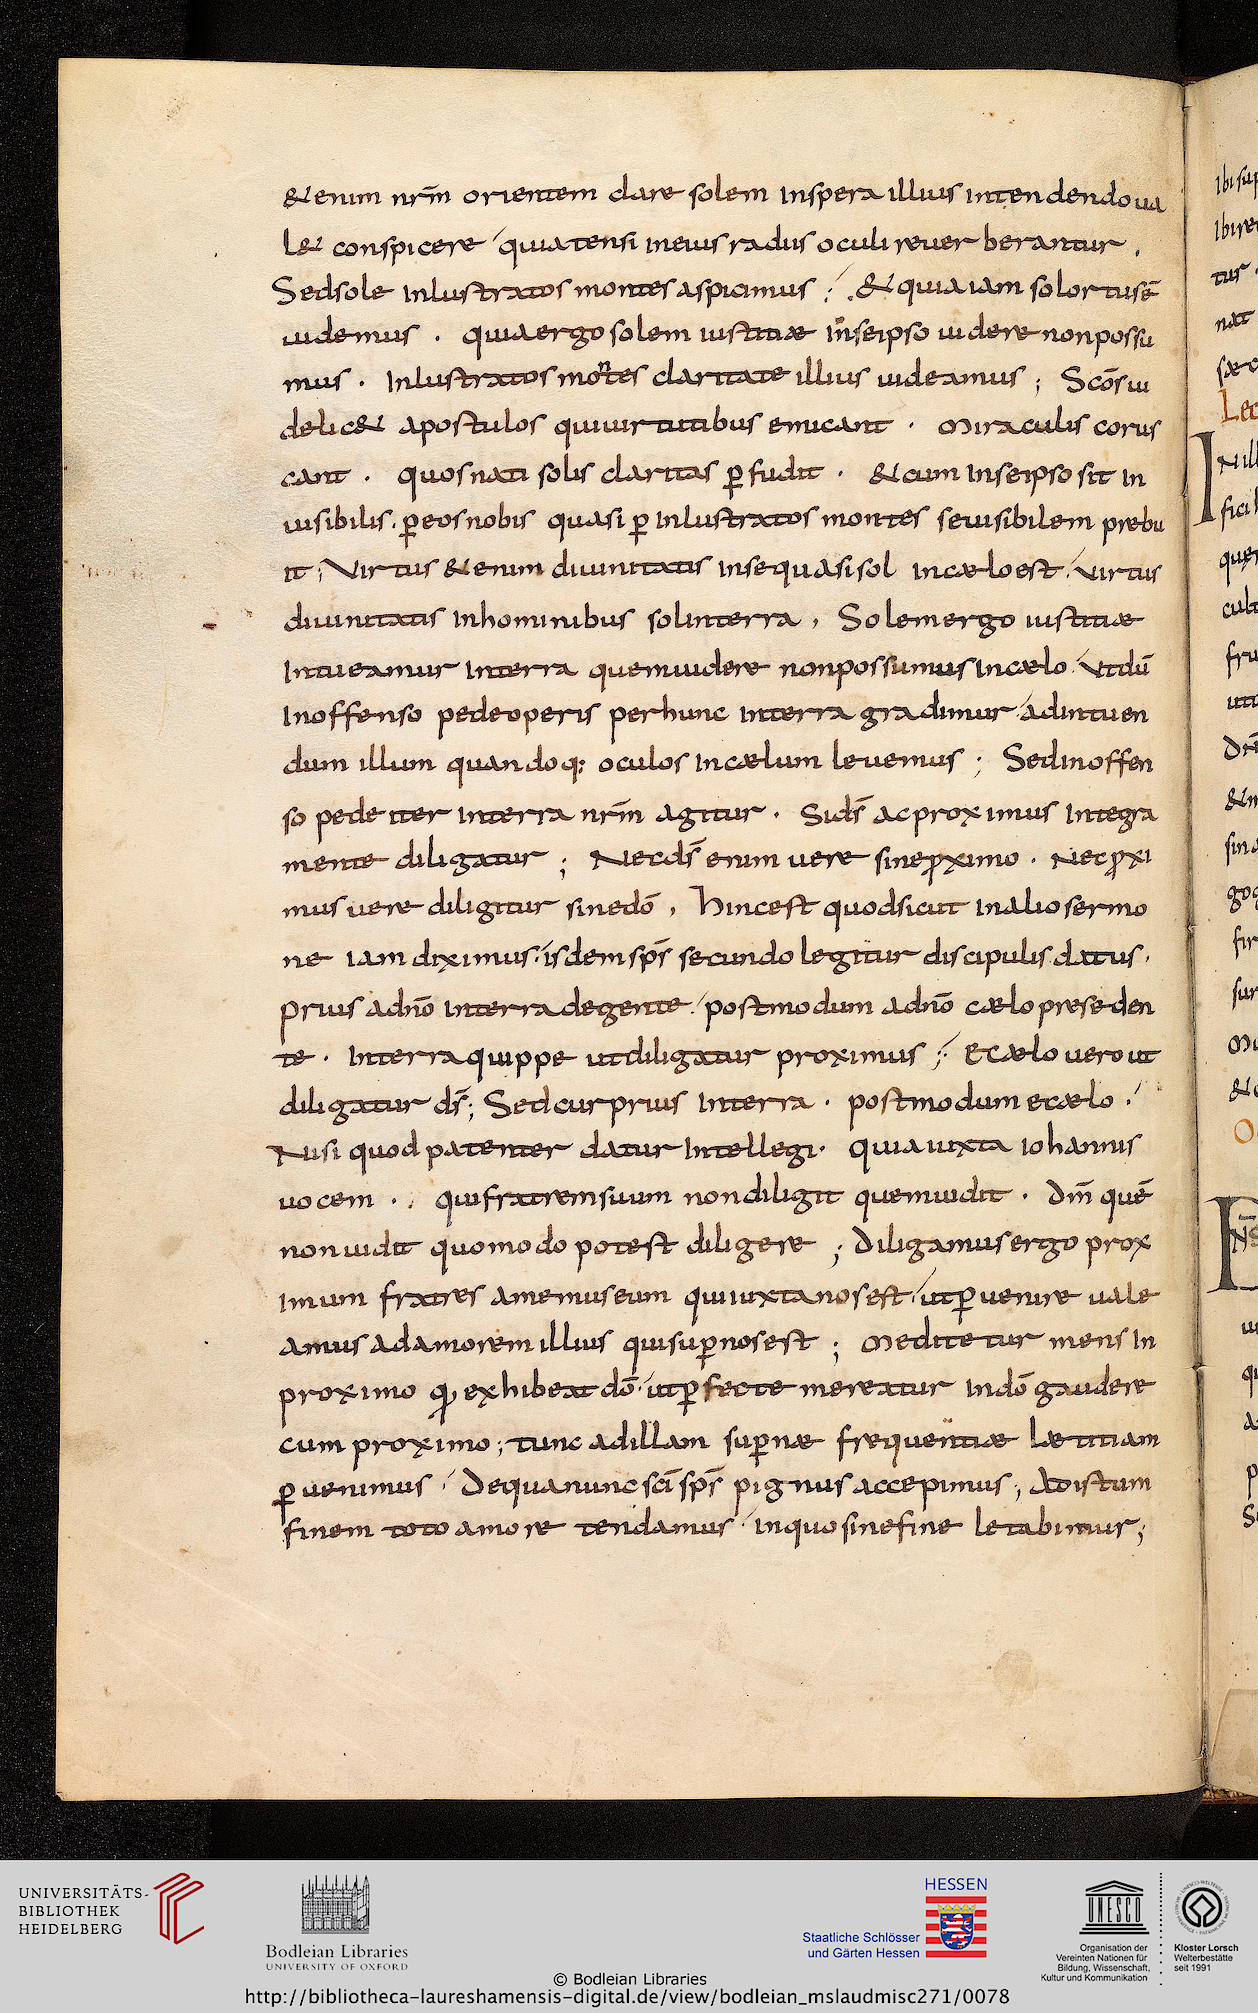 &enim nrm̄ orientem clare solem inspera illius intendendo ua
l& conspicere quia tensi in eius radus oculi reuerberantur .
Sed sole inlustratos montes aspicimus ; & quia iam sol ortus ē
uidemus . quia ergo solem iustitiæ in seipso uidere non possu
mus . Inlustratos montes claritate illius uideamus ; Scōs ui
delic& apostulos qui uirtutibus emicant . miraculis corus
cant . quos nati solis claritas ꝑfudit . & cum in seipso sit in
uisibilis . ꝑ eos nobis quasi ꝑ inlustratos montes se uisibilem prebu
it ; Virtus &enim diuinitatis in se quasi sol in cælo est . uirtus
diuinitatis in hominibus sol in terra , Solem ergo iustitiæ
Intueamur in terra quem uidere non possumus in cælo . Ut dū
Inoffenso pede operis per hunc in terra gradimur ad intuen
dum illum quandoq; oculos in cælum leuemus ; Sed inoffen
so pede iter in terra nrm̄ agitur . Si ds̄ ac proximus integra
mente diligatur ; Nec ds̄ enim uere sine ꝓximo . Nec ꝓxi
mus uere diligitur sine dō , Hinc est quod sicut in alio sermo
ne iam diximus . isdem sps̄ secundo legitur discipulis datus .
prius a dnō in terra degente . postmodum a dnō cælo preseden
te . In terra quippe ut diligatur proximus ; E cælo uero ut
diligatur ds̄ ; Sed cur prius in terra . postmodum e cælo .
Nisi quod patenter datur intellegi . quia iuxta iohannis
uocem . qui fratrem suum non diligit quem uidit . dm̄ quē
non uidit quomodo potest diligere ; Diligamus ergo prox
imum fratres amemus eum qui iuxta nos est . ut ꝑuenire uale
amus ad amorem illius qui suꝑ nos est ; Meditetur mens in
proximo qđ exhibeat dō . ut ꝑfecte mereatur in dō gaudere
cum proximo ; tunc ad illam suꝑnæ frequentiæ lætitiam
ꝑuenimus . De qua nunc sc̄i sps̄ pignus accepimus ; Ad istum
finem toto amore tendamus . in quo sine fine letabimur ;
ibi sup
tur
nat
Lec
UNIVERSITÄTS-
BIBLIOTHEK
HEIDELBERG
Bodleian Libraries
UNIVERSITY OF OXFORD
HESSEN
Staatliche Schlösser
und Gärten Hessen
UNESCO
Organisation der
Vereinten Nationen für
Bildung, Wissenschaft,
Kultur und Kommunikation
Kloster Lorsch
Welterbestätte
seit 1991
© Bodleian Libraries
http://bibliotheca-laureshamensis-digital.de/view/bodleian_mslaudmisc271/0078